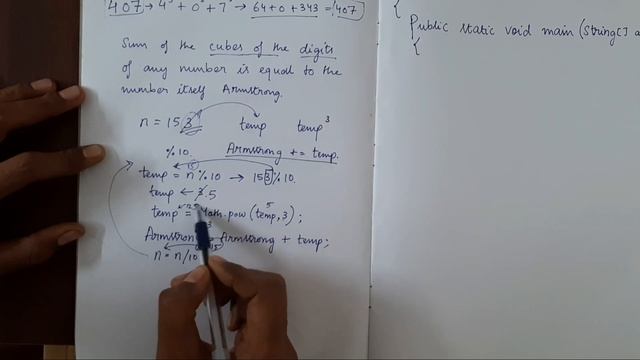 407 → 4³ + 0³ + 7³ → 64 + 0 + 343 = 407
Sum of the cubes of the digits
of any number is equal to the
number itself Armstrong.
n = 153 temp temp³
%10. Armstrong += temp.
temp = n %10 → 153%10.
temp ← 3.5
temp = Math.pow(temp,3);
Armstrong = Armstrong + temp;
n = n/10
{
Public static void main (String[] a
{